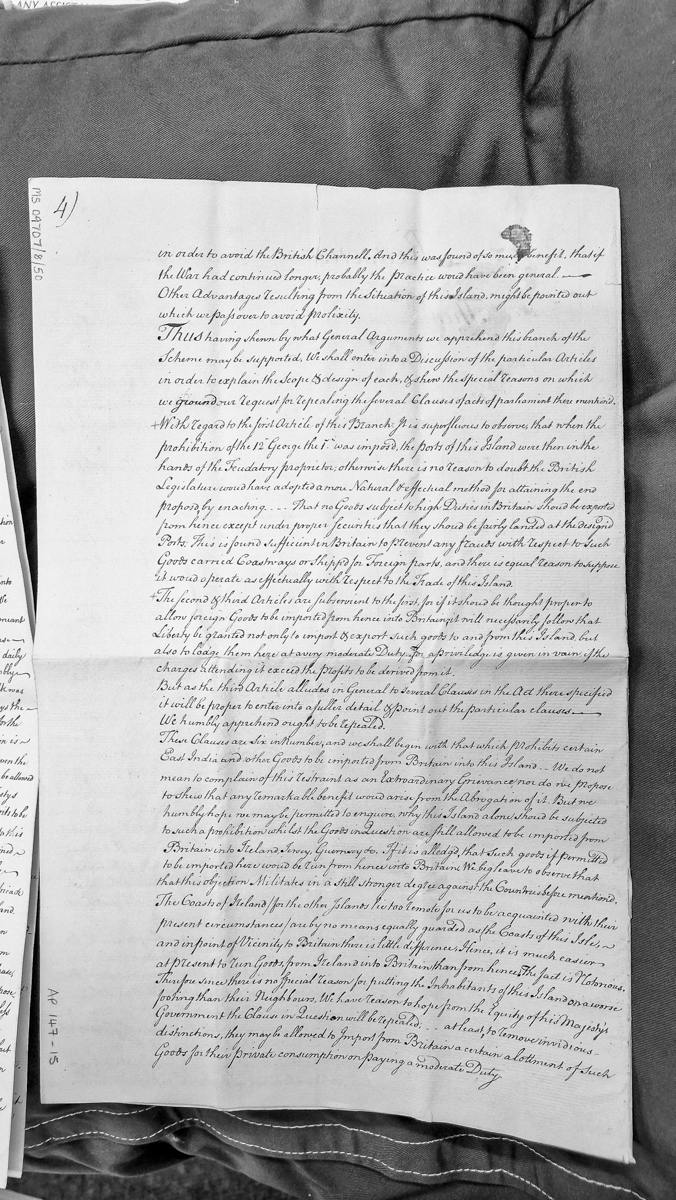 ANY ASSIST
MS 09707/8/50
4)
in order to avoid the British Channell, And this was found of so much benefit, that if
the War had continued longer, probably the practice woud have been general. —
Other Advantages resulting from the Situation of this Island, might be pointed out
which we pass over to avoid prolixity.
Thus having shewn by what General Arguments we apprehend this branch of the
Scheme may be supported, We shall enter into a Discussion of the particular Articles
in order to explain the Scope & design of each, & shew the special reasons on which
we ground our request for repealing the several Clauses of acts of parliament there mentiond.
+With regard to the first Article of this Branch It is superfluous to observe, that when the
prohibition of the 12th George the 1st was imposd, the ports of this Island were then in the
hands of the Feudatory proprietor, otherwise there is no reason to doubt the British
Legislature woud have adopted a more Natural & effectual method for attaining the end
proposd, by enacting - - - That no Goods subject to high Duties in Britain shoud be exported
from hence except under proper Securities that they shoud be fairly landed at the designd
Ports. This is found Sufficient in Britain to prevent any frauds with respect to Such
Goods carried Coastways or Shipp'd for Foreign parts, and there is equal reason to suppose
it woud operate as effectually with respect to the Trade of this Island.
+The second & third Articles are subservient to the first, for if it shoud be thought proper to
allow foreign Goods to be imported from hence into Britain, it will necessarily follow that
Liberty be granted not only to import & export such goods to and from this Island, but
also to lodge them here at a very moderate Duty, for a priviledge is given in vain if the
charges attending it exceed the profits to be derived from it.
But as the third Article alludes in General to Several Clauses in the Act there specified
it will be proper to enter into a fuller detail & point out the particular clauses —
We humbly apprehend ought to be repealed.
These Clauses are Six in Number, and we shall begin with that which prohibits certain
East India and other Goods to be imported from Britain into this Island -- We do not
mean to complain of this restraint as an Extraordinary Grievance, nor do we propose
to shew that any remarkable benefit woud arise from the Abrogation of it. But we
humbly hope we may be permitted to enquire, why this Island alone shoud be subjected
to such a prohibition whilst the Goods in Question are still allowed to be imported from
Britain into Ireland, Jersey, Guernsey &c. If it is alledgd, that Such goods if permitted
to be imported here woud be run from hence into Britain, We beg leave to observe that
that this objection Militates in a still stronger degree against the Countries before mentioned,
The Coasts of Ireland /for the other Islands lie too remote for us to be acquainted with their
present circumstances/ are by no means equally guarded as the Coasts of this Isle,
and in point of Vicinity to Britain there is little difference; Hence, it is much easier
at present to run Goods, from Ireland into Britain than from hence, The fact is Notorious.
Therefore since there is no Special reason for putting the Inhabitants of this Island on a worse
footing than their Neighbours, We have reason to hope from the Equity of his Majesty's
Government the Clause in Question will be repealed; - - - at least, to remove invidious
distinctions, they may be allowed to Import from Britain a certain allotment of Such
Goods for their private consumption on paying a moderate Duty.
AP 147-15